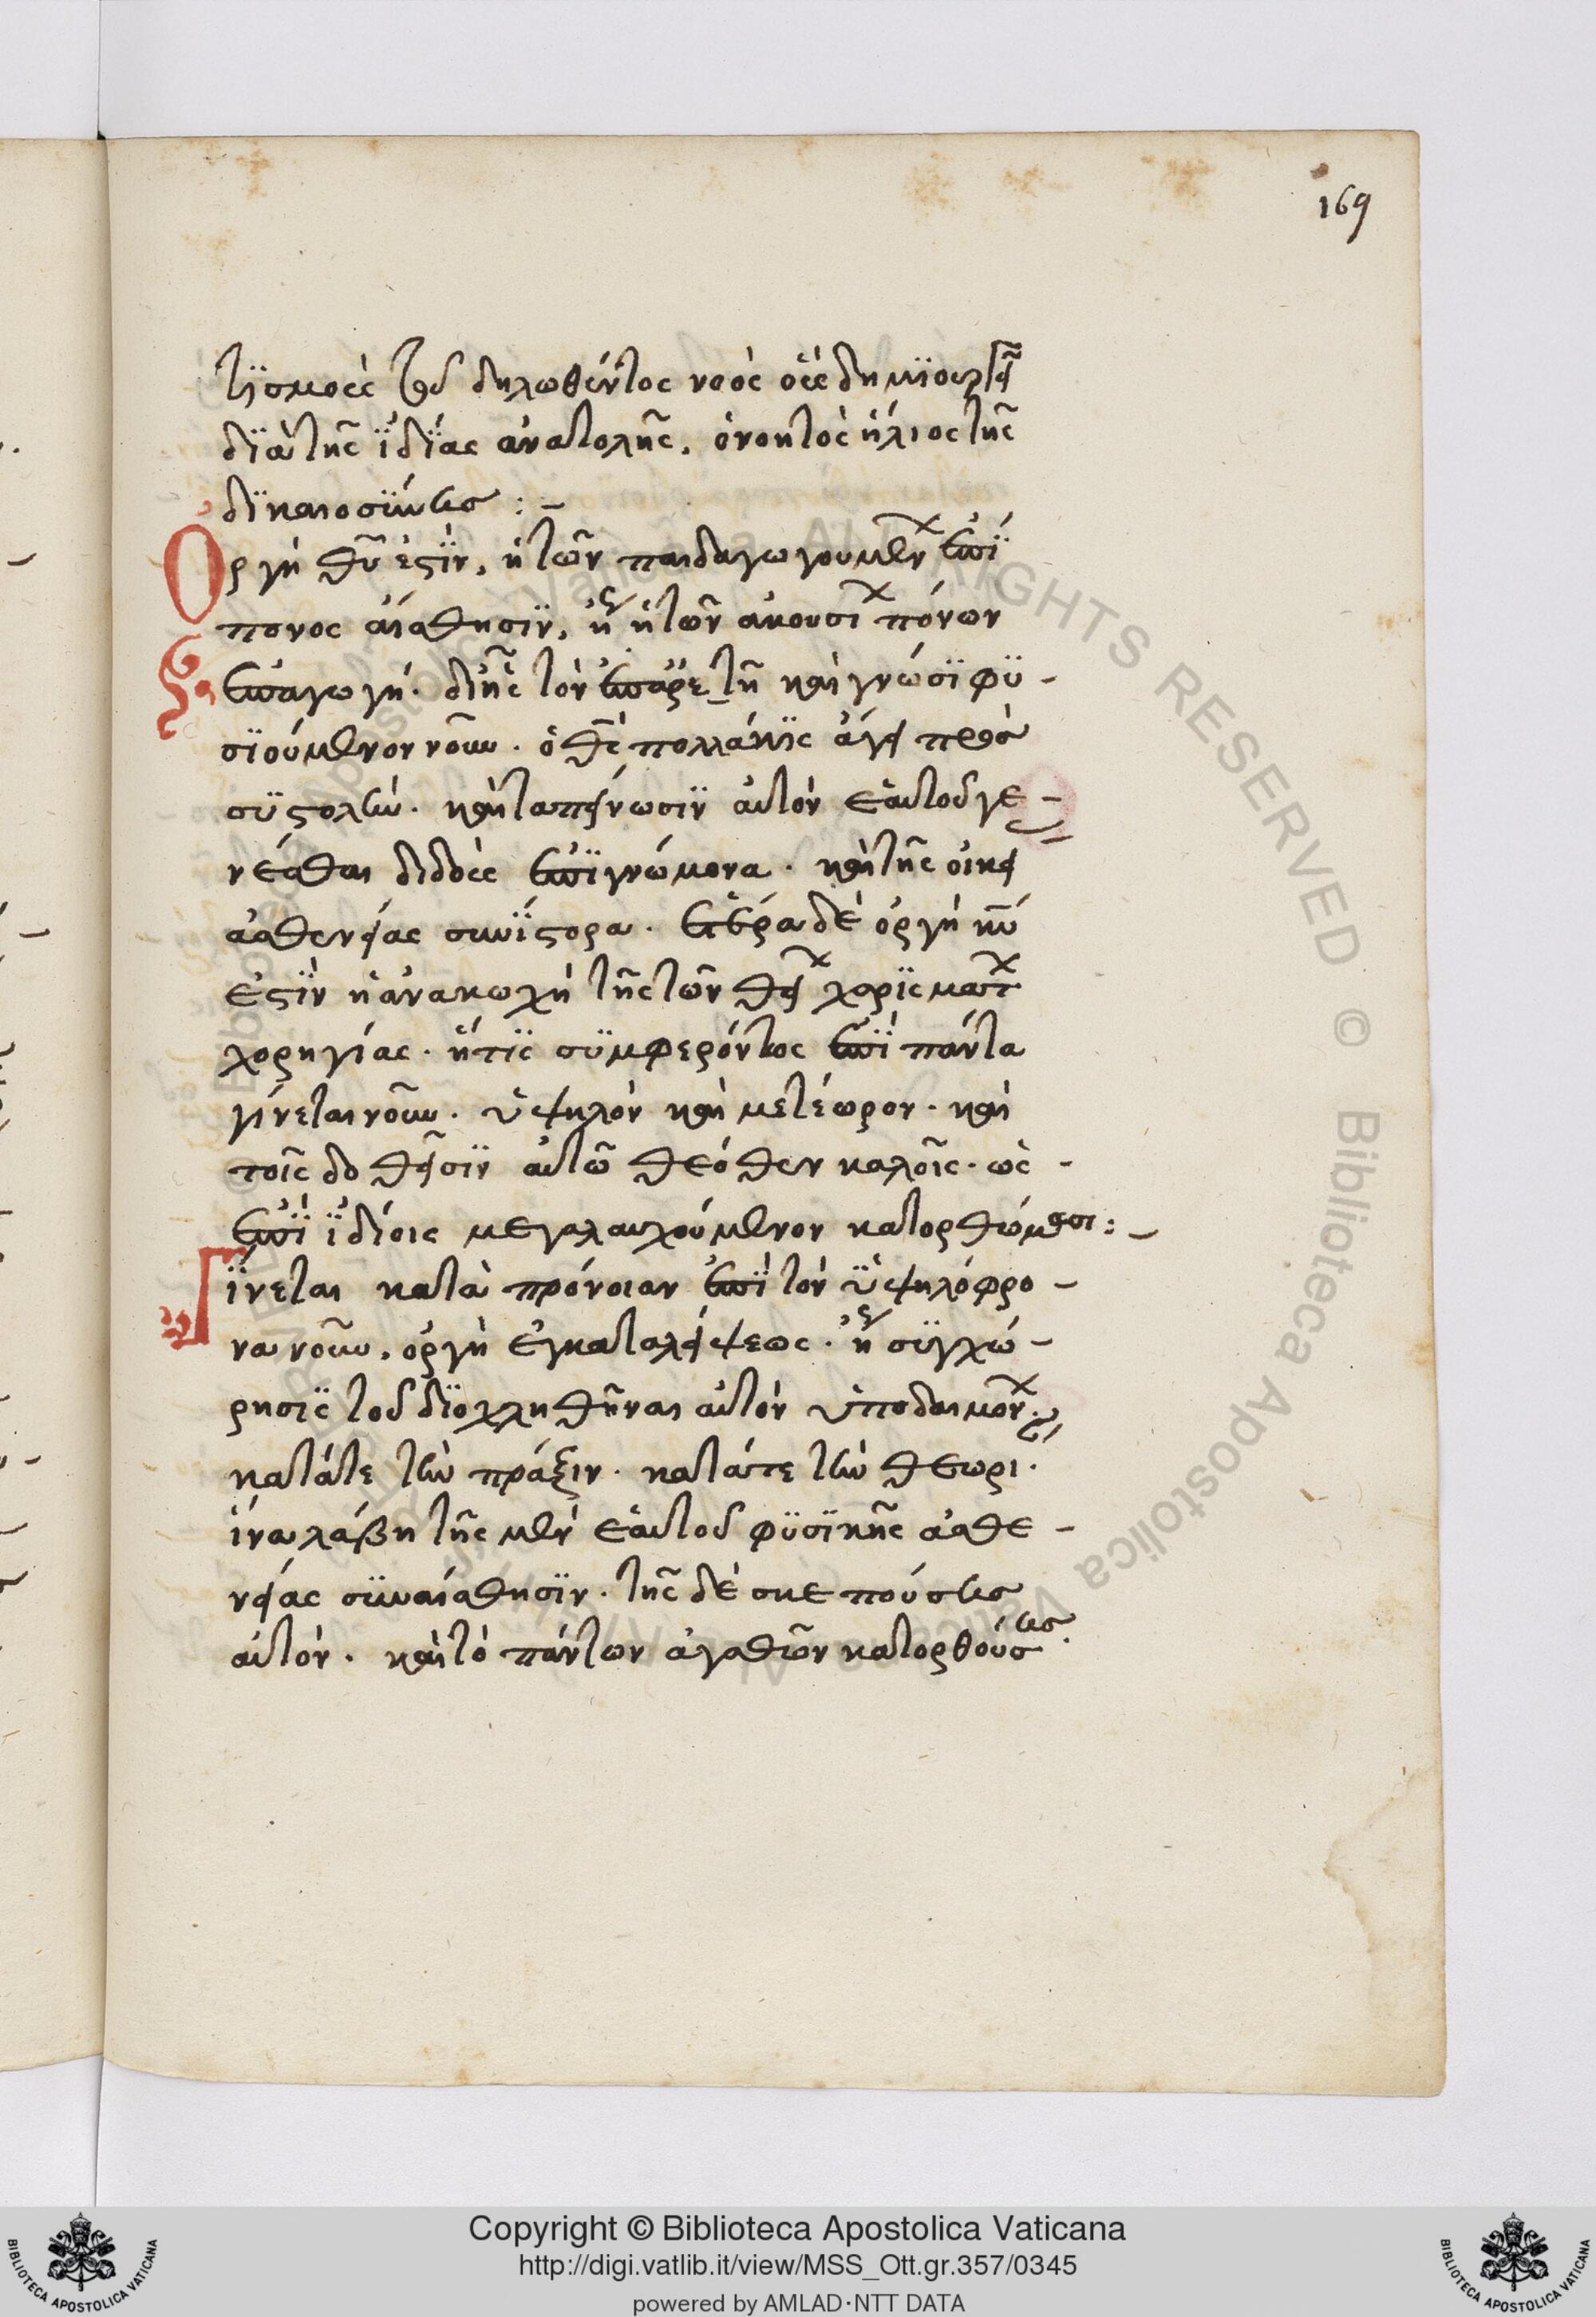 169
τισμοὺς τοῦ δηλωθέντος νοὸς οὓς δημιουργεῖ
διὰ τῆς ἰδίας ἀνατολῆς, ὁ νοητὸς ἥλιος τῆς
δικαιοσύνης : –
Οργὴ θῦ ἐστὶν, ἡ τῶν παιδαγωγουμένων ἐπί
πονος αἴσθησιν, ἢ ἡ τῶν ἀκουσίων πόνων
ἐπαγωγή. δι' ἧς τὸν ἐπ' ἀρετῇ καὶ γνώσι φυ –
σιούμενον νοῦν. ὁ θς πολλάκις ἄγει πρὸς
συστολὴν. καὶ ταπείνωσιν αὐτὸν ἑαυτοῦ γε –
νέσθαι διδοὺς ἐπιγνώμονα. καὶ τῆς οἰκεί
ἀσθενείας συνίστορα. ἑτέρα δὲ ὀργὴ κυ
ἐστὶν ἡ ἀνακωχὴ τῆς τῶν θείων χαρισμάτων
χορηγίας. ἥτις συμφερόντος ἐπὶ πάντα
γίνεται νοῦν. ὑψηλὸν καὶ μετέωρον. καὶ
τοῖς δοθεῖσιν αὐτῶ θεόθεν καλοῖς. ὡς –
ἐπὶ ἰδίοις μεγαλαυχούμενον κατορθώμασι : –
Γίνεται κατὰ πρόνοιαν ἐπὶ τὸν ὑψηλόφρο –
να νοῦν, ὀργὴ ἐγκαταλείψεως. ἢ συγχώ –
ρησις τοῦ διοχληθῆναι αὐτὸν ὑπὸ δαιμόνων
κατά τε τὴν πράξιν. κατά τε τὴν θεωρι.
ἵνα λάβη τῆς μὲν ἑαυτοῦ φυσικῆς ἀσθε –
νείας συναίσθησιν. τῆς δὲ σκεπούσης
αὐτὸν. καὶ τὸ πάντων ἀγαθῶν κατορθούσης.
Copyright © Biblioteca Apostolica Vaticana
http://digi.vatlib.it/view/MSS_Ott.gr.357/0345
powered by AMLAD·NTT DATA